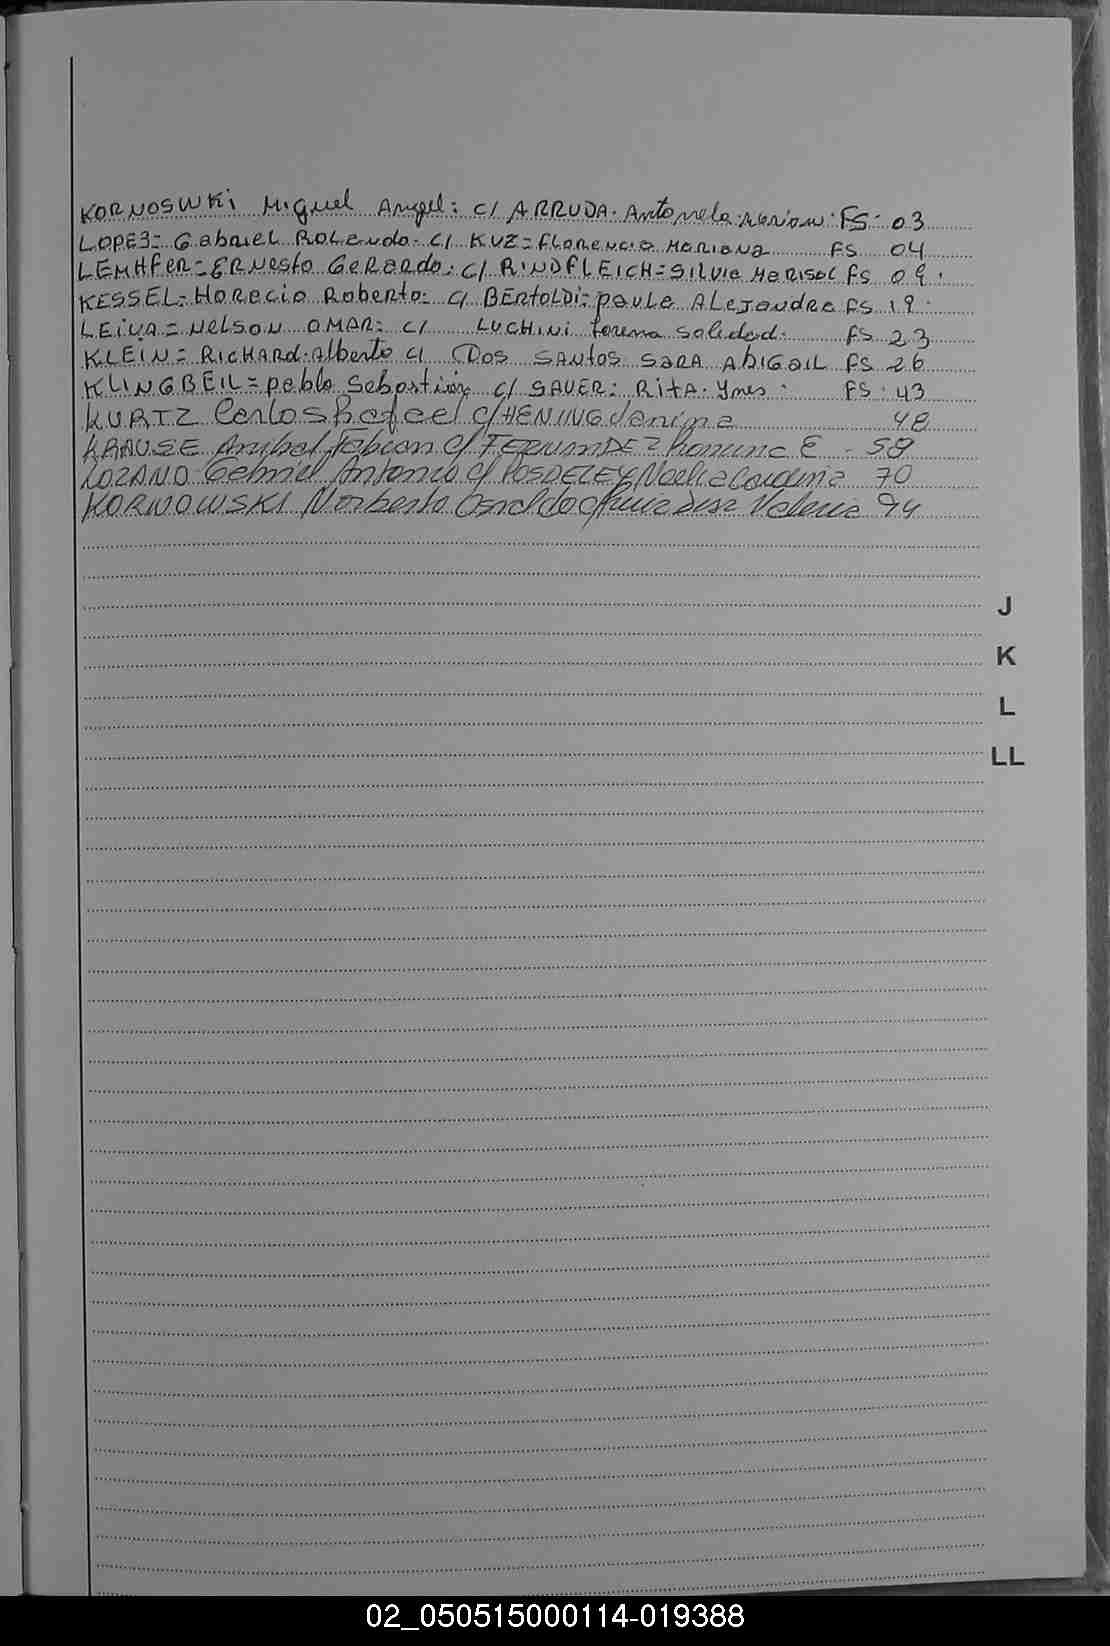 KORNOSWKi Miguel Angel: c/ ARRUDA. Antonela. FS: 03
LOPEZ= Gabriel Rolando. c/ KUZ= Florencia Mariana FS 04
LEMHfer= ERNesto Gerardo: c/ RiNDFLEICH= Silvia Marisol fs 09.
KESSEL= Horacio Roberto: c/ BERtoLDi= paula ALejandra fs 19.
LEiVA= Nelson OMAR: c/ LUCHiNi Lorena Soledad. fs 23
KLEIN= RicHARd. Alberto c/ Dos SANtos SARA AbiGAiL fs 26
KLINGBEIL= pablo Sebastián c/ SAUER: RitA. Ynes. FS. 43
KURTZ Carlos Rafael c/ HENING Janina 48
KRAUSE Anibal Fabian c/ FERNANDEZ Romina E - 58
LOZANO Gabriel Antonio c/ Noelia Carolina 70
KORNOWSKI Norberto Osvaldo c/ Valeria 94
J
K
L
LL
02_050515000114-019388